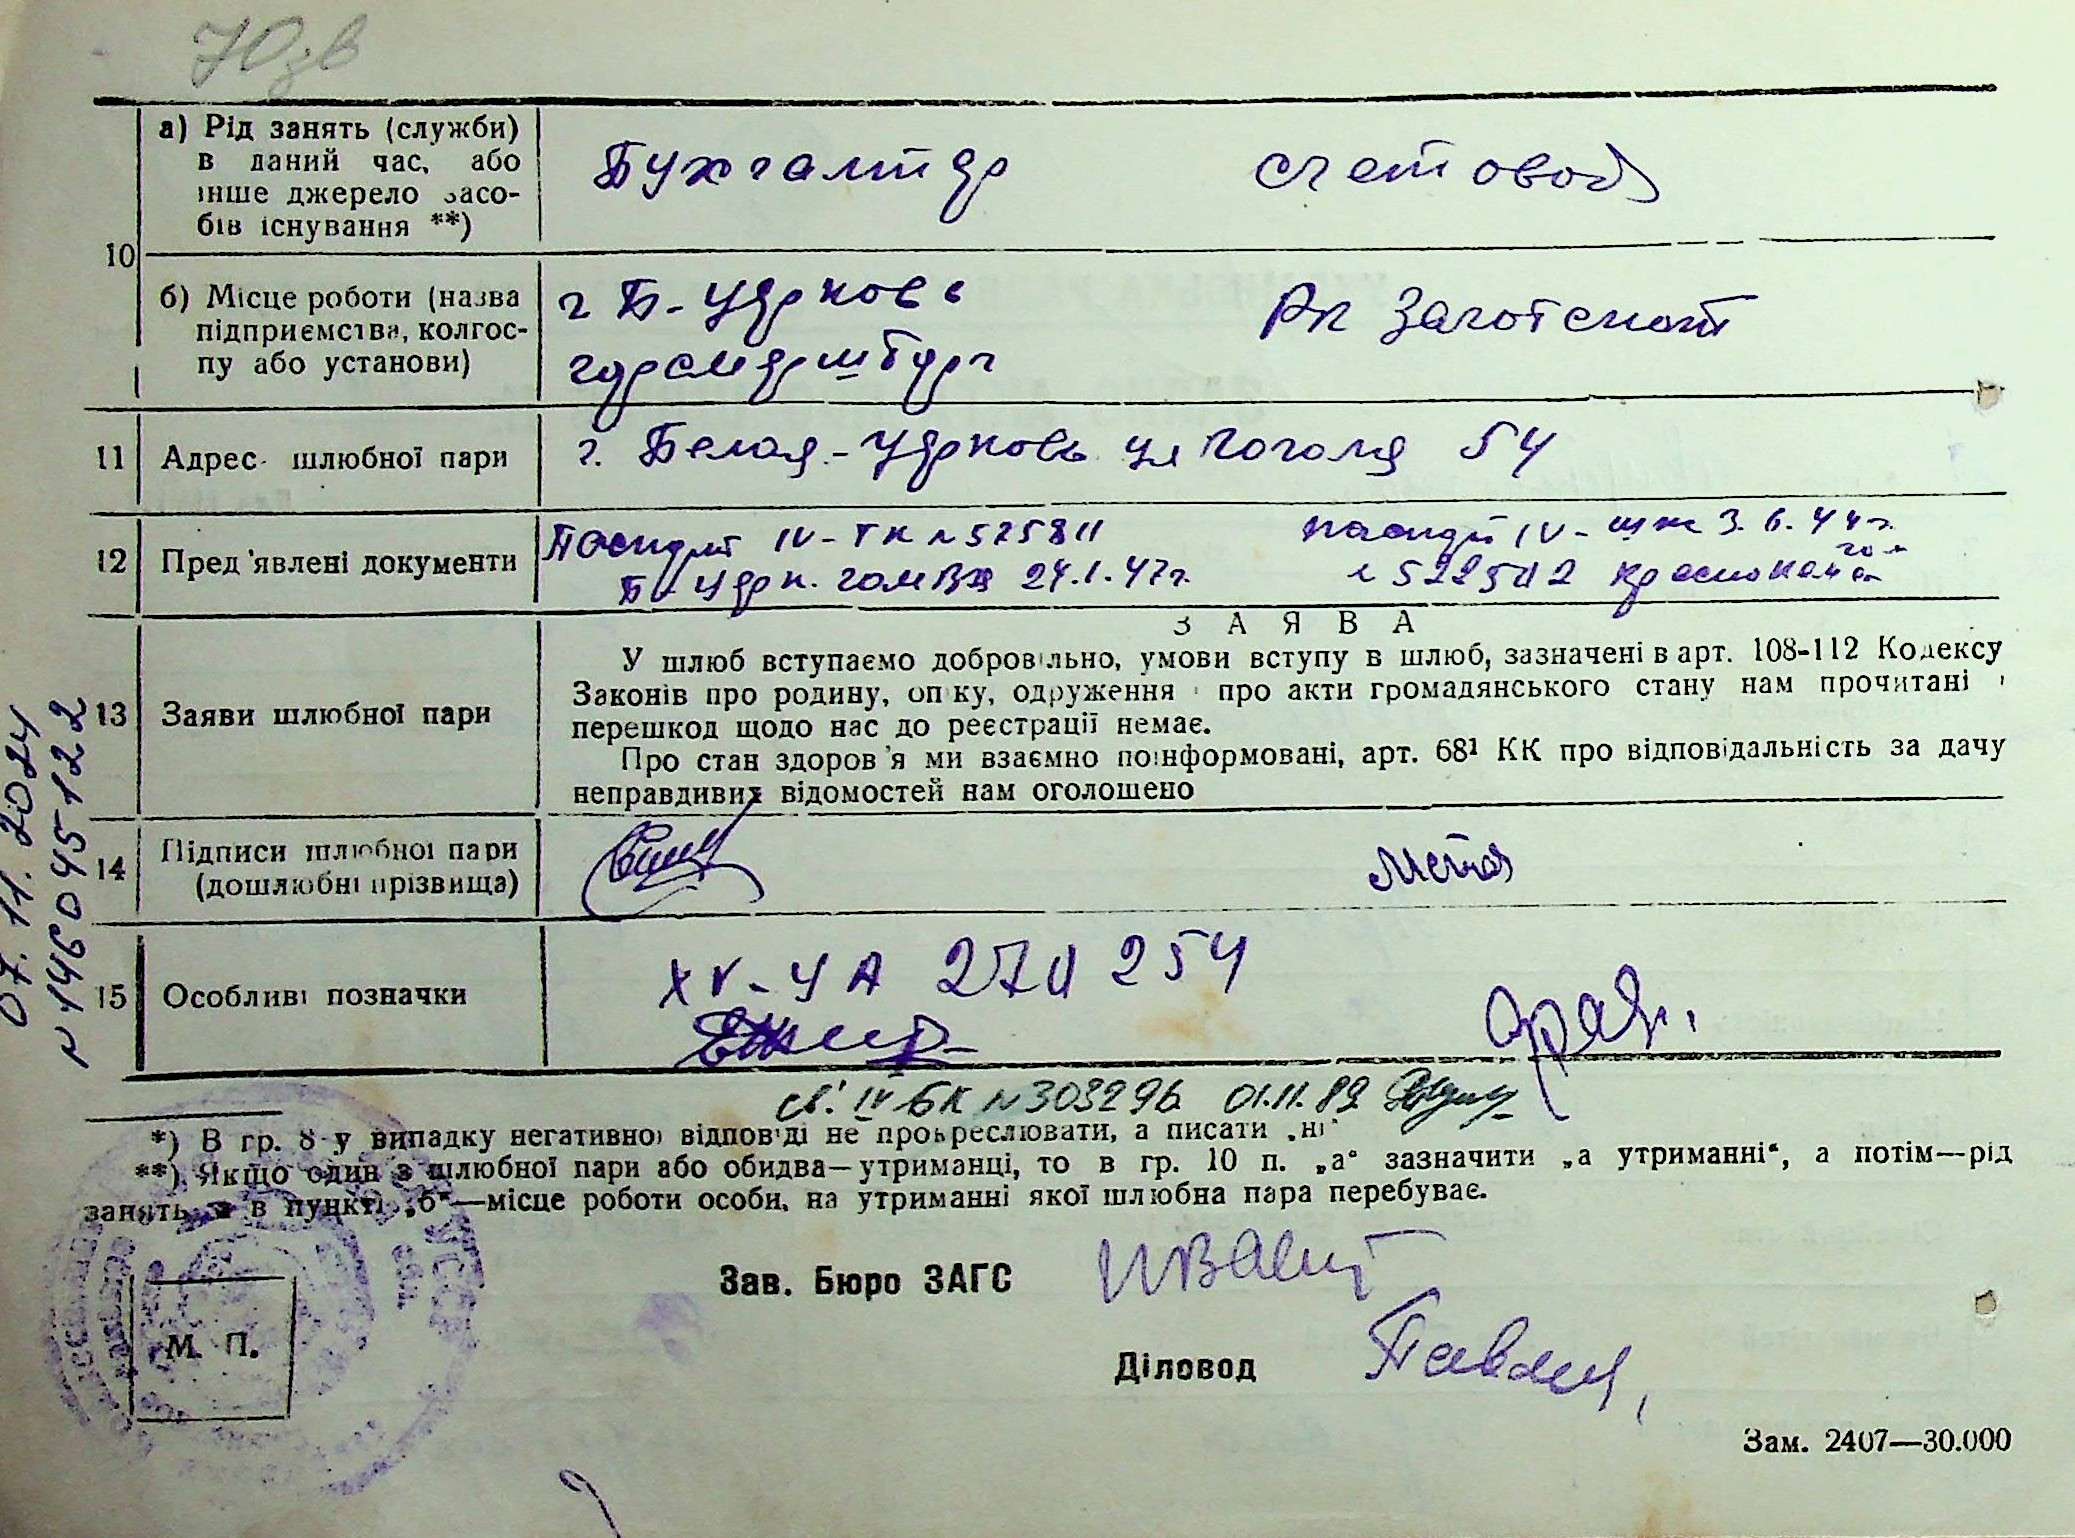 10
а) Рід занять (служби)
в даний час, або
інше джерело засо-
бів існування **)
Бухгалтер
счетовод
б) Місце роботи (назва
підприємства, колгос-
пу або установи)
г Б-Церковь
Рк Заготскот
11 Адрес шлюбної пари
г. Белая-Церковь ул Гоголя 54
12 Пред'явлені документи
Паспорт IV-ТК N 575811
Б-Церк. 24.1.47г.
паспорт IV- 3.6.44г.
13 Заяви шлюбної пари
ЗАЯВА
У шлюб вступаємо добровільно, умови вступу в шлюб, зазначені в арт. 108-112 Кодексу
Законів про родину, опіку, одруження і про акти громадянського стану нам прочитані і
перешкод щодо нас до реєстрації немає.
Про стан здоров'я ми взаємно поінформовані, арт. 68¹ КК про відповідальність за дачу
неправдивих відомостей нам оголошено
14 Підписи шлюбної пари
(дошлюбні прізвища)
15 Особливі позначки
XV-УА 270254
IV БК N 303296 01.11.89
07.11.2024
N 146045122
*) В гр. 8 у випадку негативної відповіді не прокреслювати, а писати „ні"
**) Якщо один з шлюбної пари або обидва—утриманці, то в гр. 10 п. „а" зазначити „а утриманні", а потім—рід
занять, а в пункті „б"—місце роботи особи, на утриманні якої шлюбна пара перебуває.
Зав. Бюро ЗАГС
Діловод
М. П.
Зам. 2407—30.000